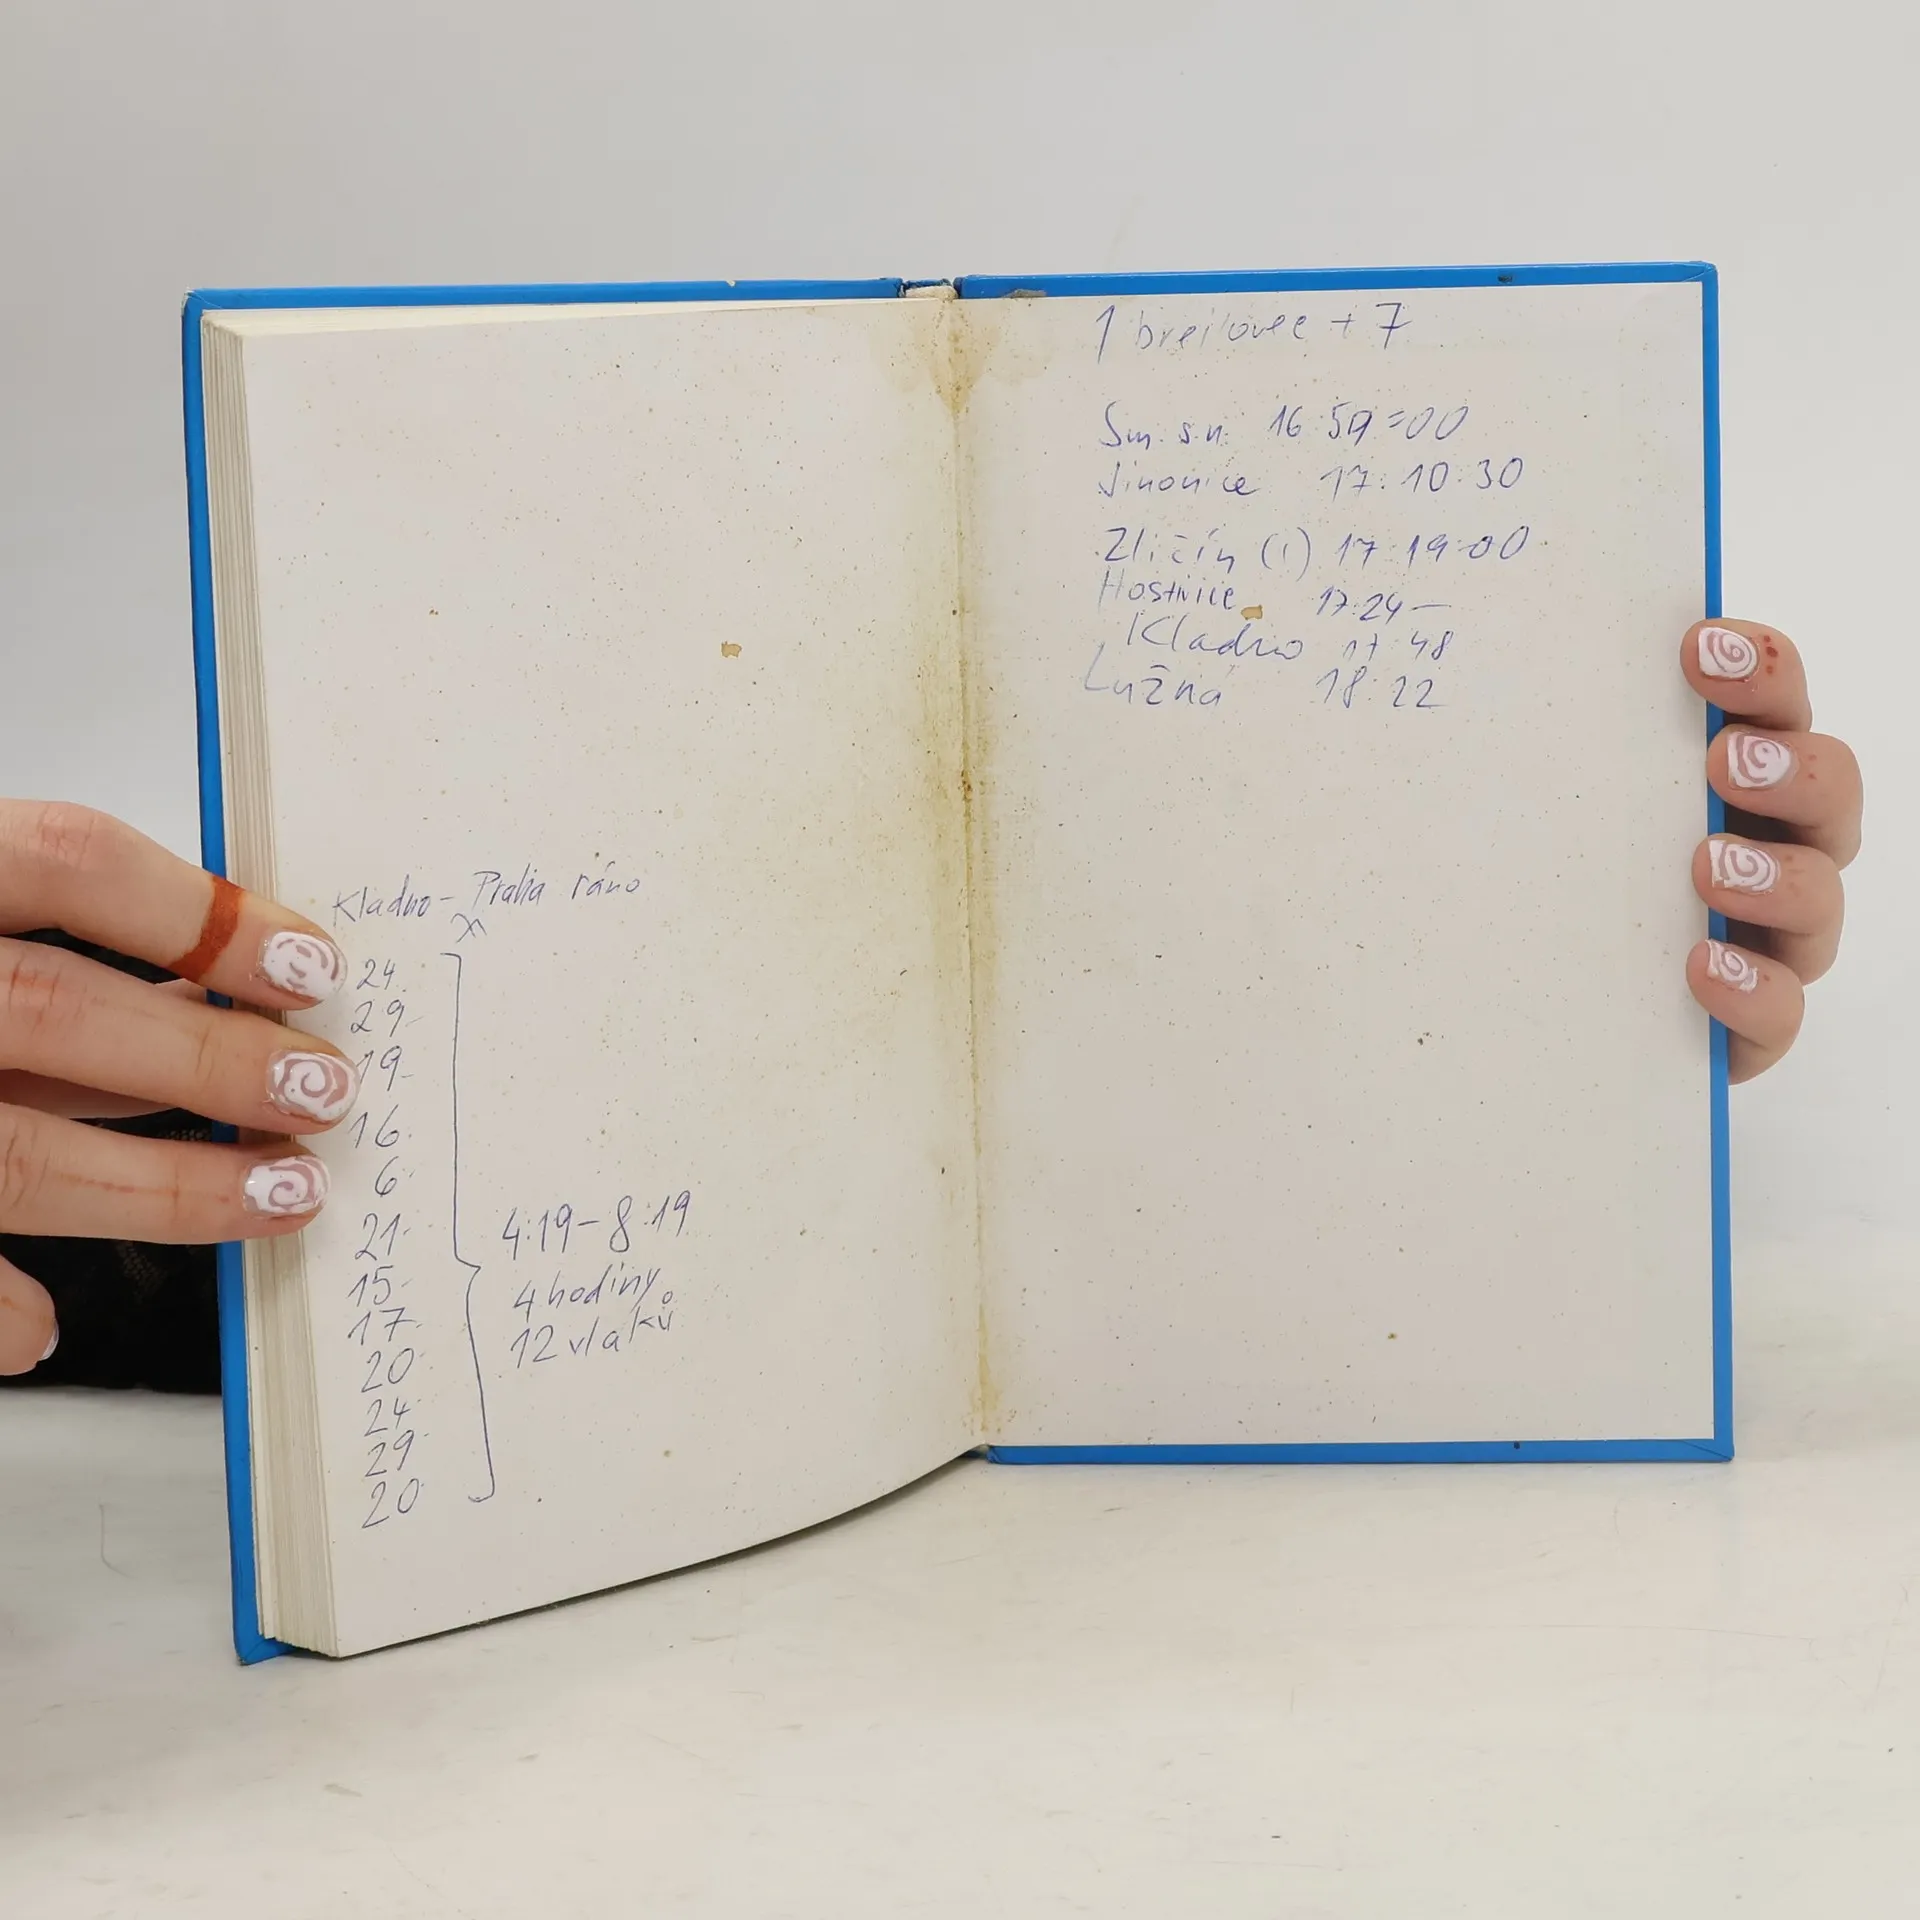 Kladno - Praha ráno
24
29
19
16
6
21
15
17
20
24
29
20
4:19 - 8:19
4 hodiny
12 vlaků
1 brejlovec + 7
Sm. s.n. 16:59:00
Jinonice 17:10:30
Zličín (i) 17:19:00
Hostivice 17:24 -
Kladno 17:48
Lužná 18:22